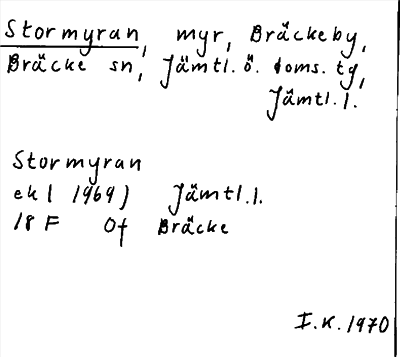 Stormyran, myr, Bräckeby,
Bräcke sn, Jämtl. ö. doms. tg,
Jämtl. l.
Stormyran
ek ( 1969) Jämtl. l.
18 F Of Bräcke
I. K. 1970